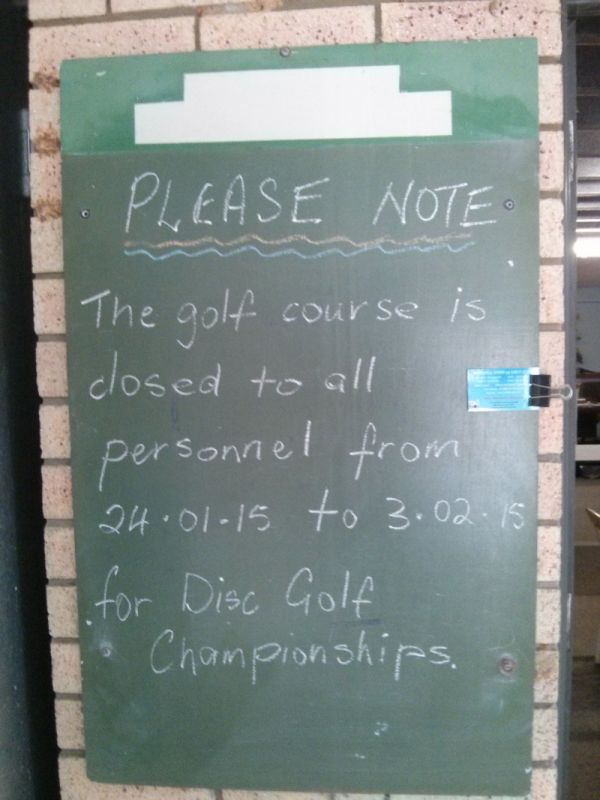 PLEASE NOTE
The golf course is
closed to all
personnel from
24.01.15 to 3.02.15
for Disc Golf
Championships.